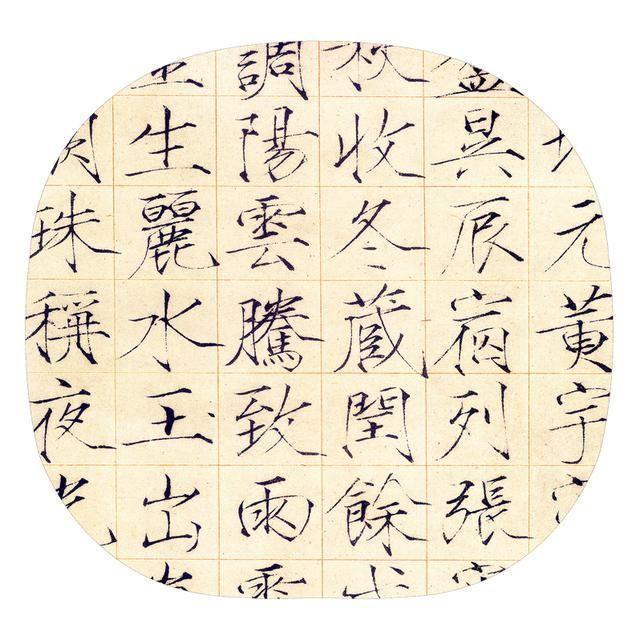 元黄宇
昃辰宿列張
秋收冬蔵閏餘
調陽雲騰致雨
生麗水玉出
珠稱夜光